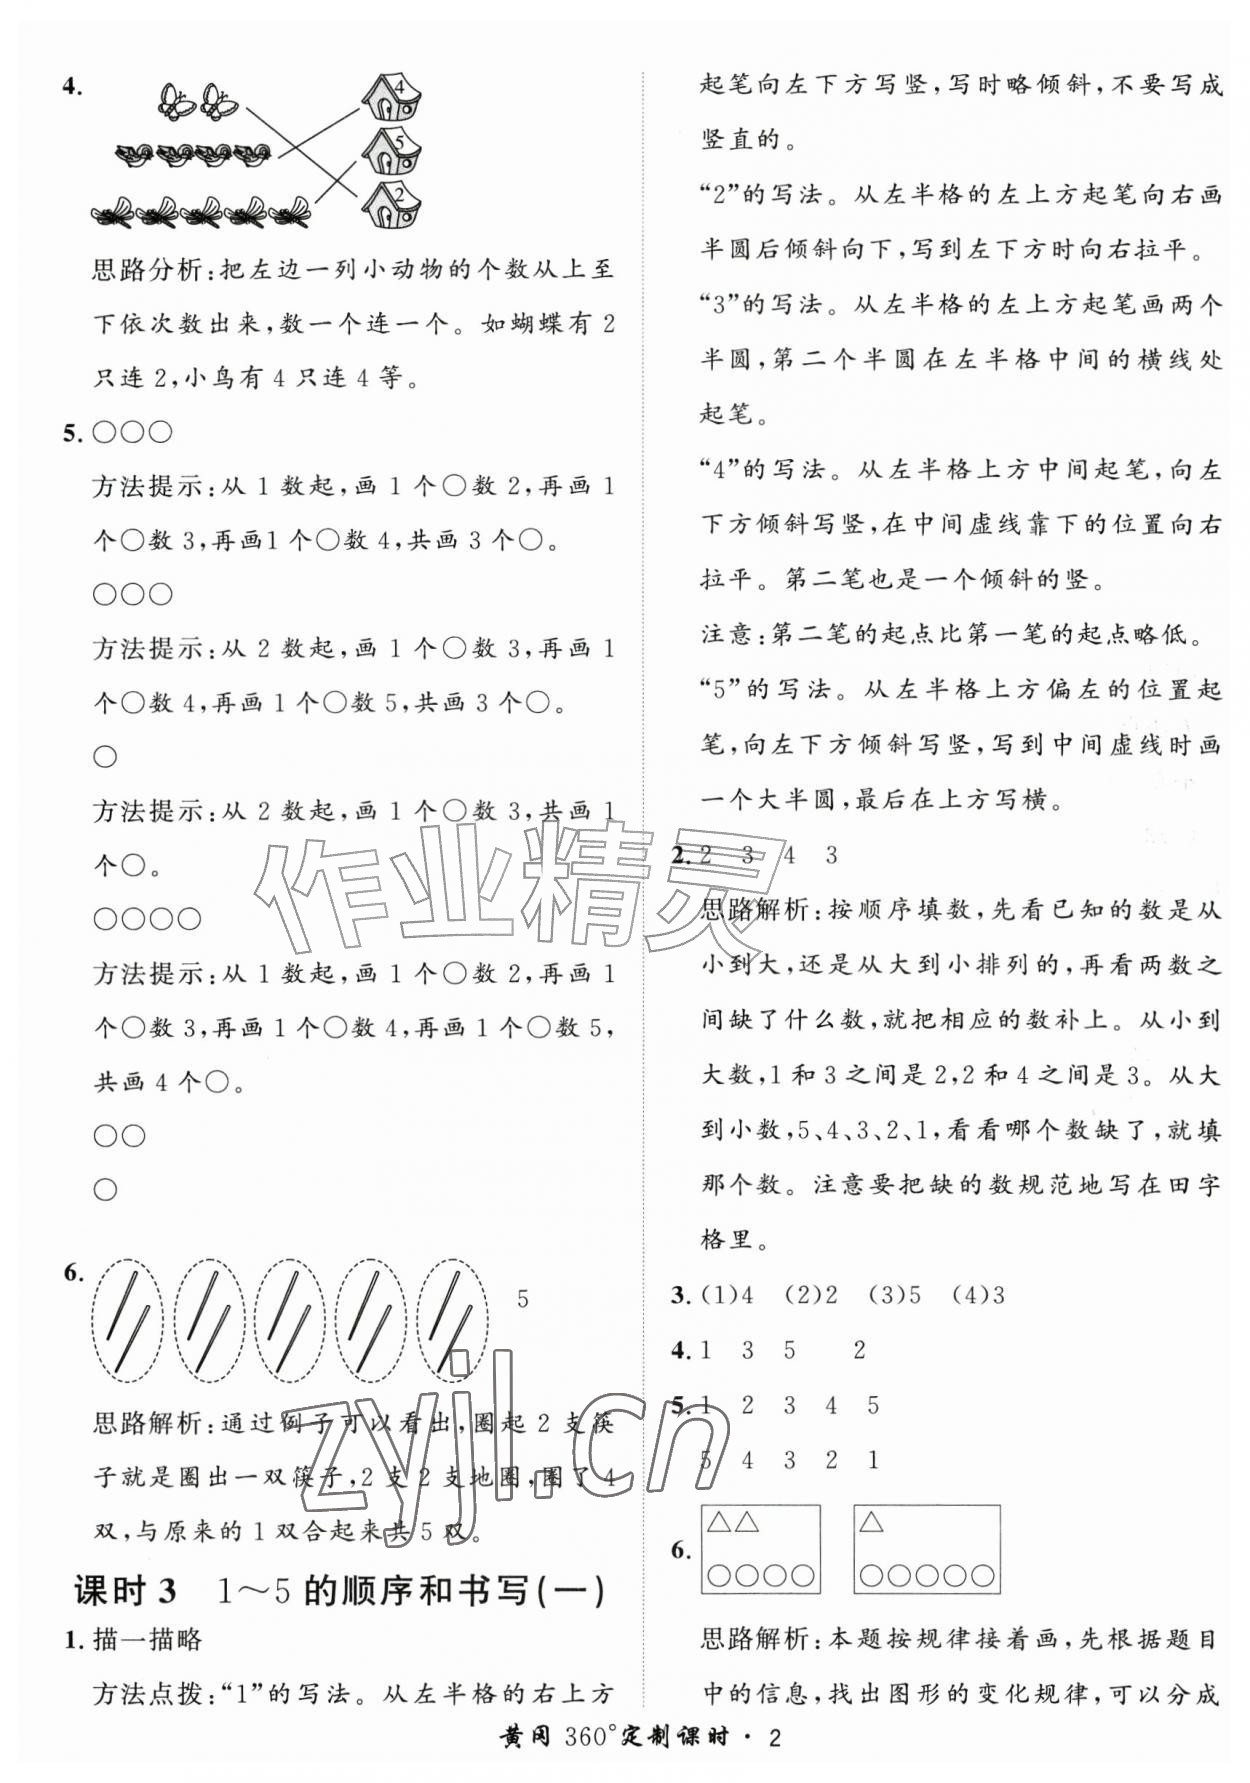 4.
4
5
2
思路分析:把左边一列小动物的个数从上至
下依次数出来,数一个连一个。如蝴蝶有2
只连2,小鸟有4只连4等。
5. ○○○
方法提示:从1数起,画1个○数2,再画1
个○数3,再画1个○数4,共画3个○。
○○○
方法提示:从2数起,画1个○数3,再画1
个○数4,再画1个○数5,共画3个○。
○
方法提示:从2数起,画1个○数3,共画1
个○。
○○○○
方法提示:从1数起,画1个○数2,再画1
个○数3,再画1个○数4,再画1个○数5,
共画4个○。
○○
○
6.
5
思路解析:通过例子可以看出,圈起2支筷
子就是圈出一双筷子,2支2支地圈,圈了4
双,与原来的1双合起来共5双。
课时3 1～5的顺序和书写(一)
1. 描一描略
方法点拨:“1”的写法。从左半格的右上方
起笔向左下方写竖,写时略倾斜,不要写成
竖直的。
“2”的写法。从左半格的左上方起笔向右画
半圆后倾斜向下,写到左下方时向右拉平。
“3”的写法。从左半格的左上方起笔画两个
半圆,第二个半圆在左半格中间的横线处
起笔。
“4”的写法。从左半格上方中间起笔,向左
下方倾斜写竖,在中间虚线靠下的位置向右
拉平。第二笔也是一个倾斜的竖。
注意:第二笔的起点比第一笔的起点略低。
“5”的写法。从左半格上方偏左的位置起
笔,向左下方倾斜写竖,写到中间虚线时画
一个大半圆,最后在上方写横。
2. 2 3 4 3
思路解析:按顺序填数,先看已知的数是从
小到大,还是从大到小排列的,再看两数之
间缺了什么数,就把相应的数补上。从小到
大数,1和3之间是2,2和4之间是3。从大
到小数,5、4、3、2、1,看看哪个数缺了,就填
那个数。注意要把缺的数规范地写在田字
格里。
3. (1)4 (2)2 (3)5 (4)3
4. 1 3 5 2
5. 1 2 3 4 5
5 4 3 2 1
6. △△ △
○○○○ ○○○○○
思路解析:本题按规律接着画,先根据题目
中的信息,找出图形的变化规律,可以分成
黄冈 360°定制课时·2
作业精灵
zyjl.cn